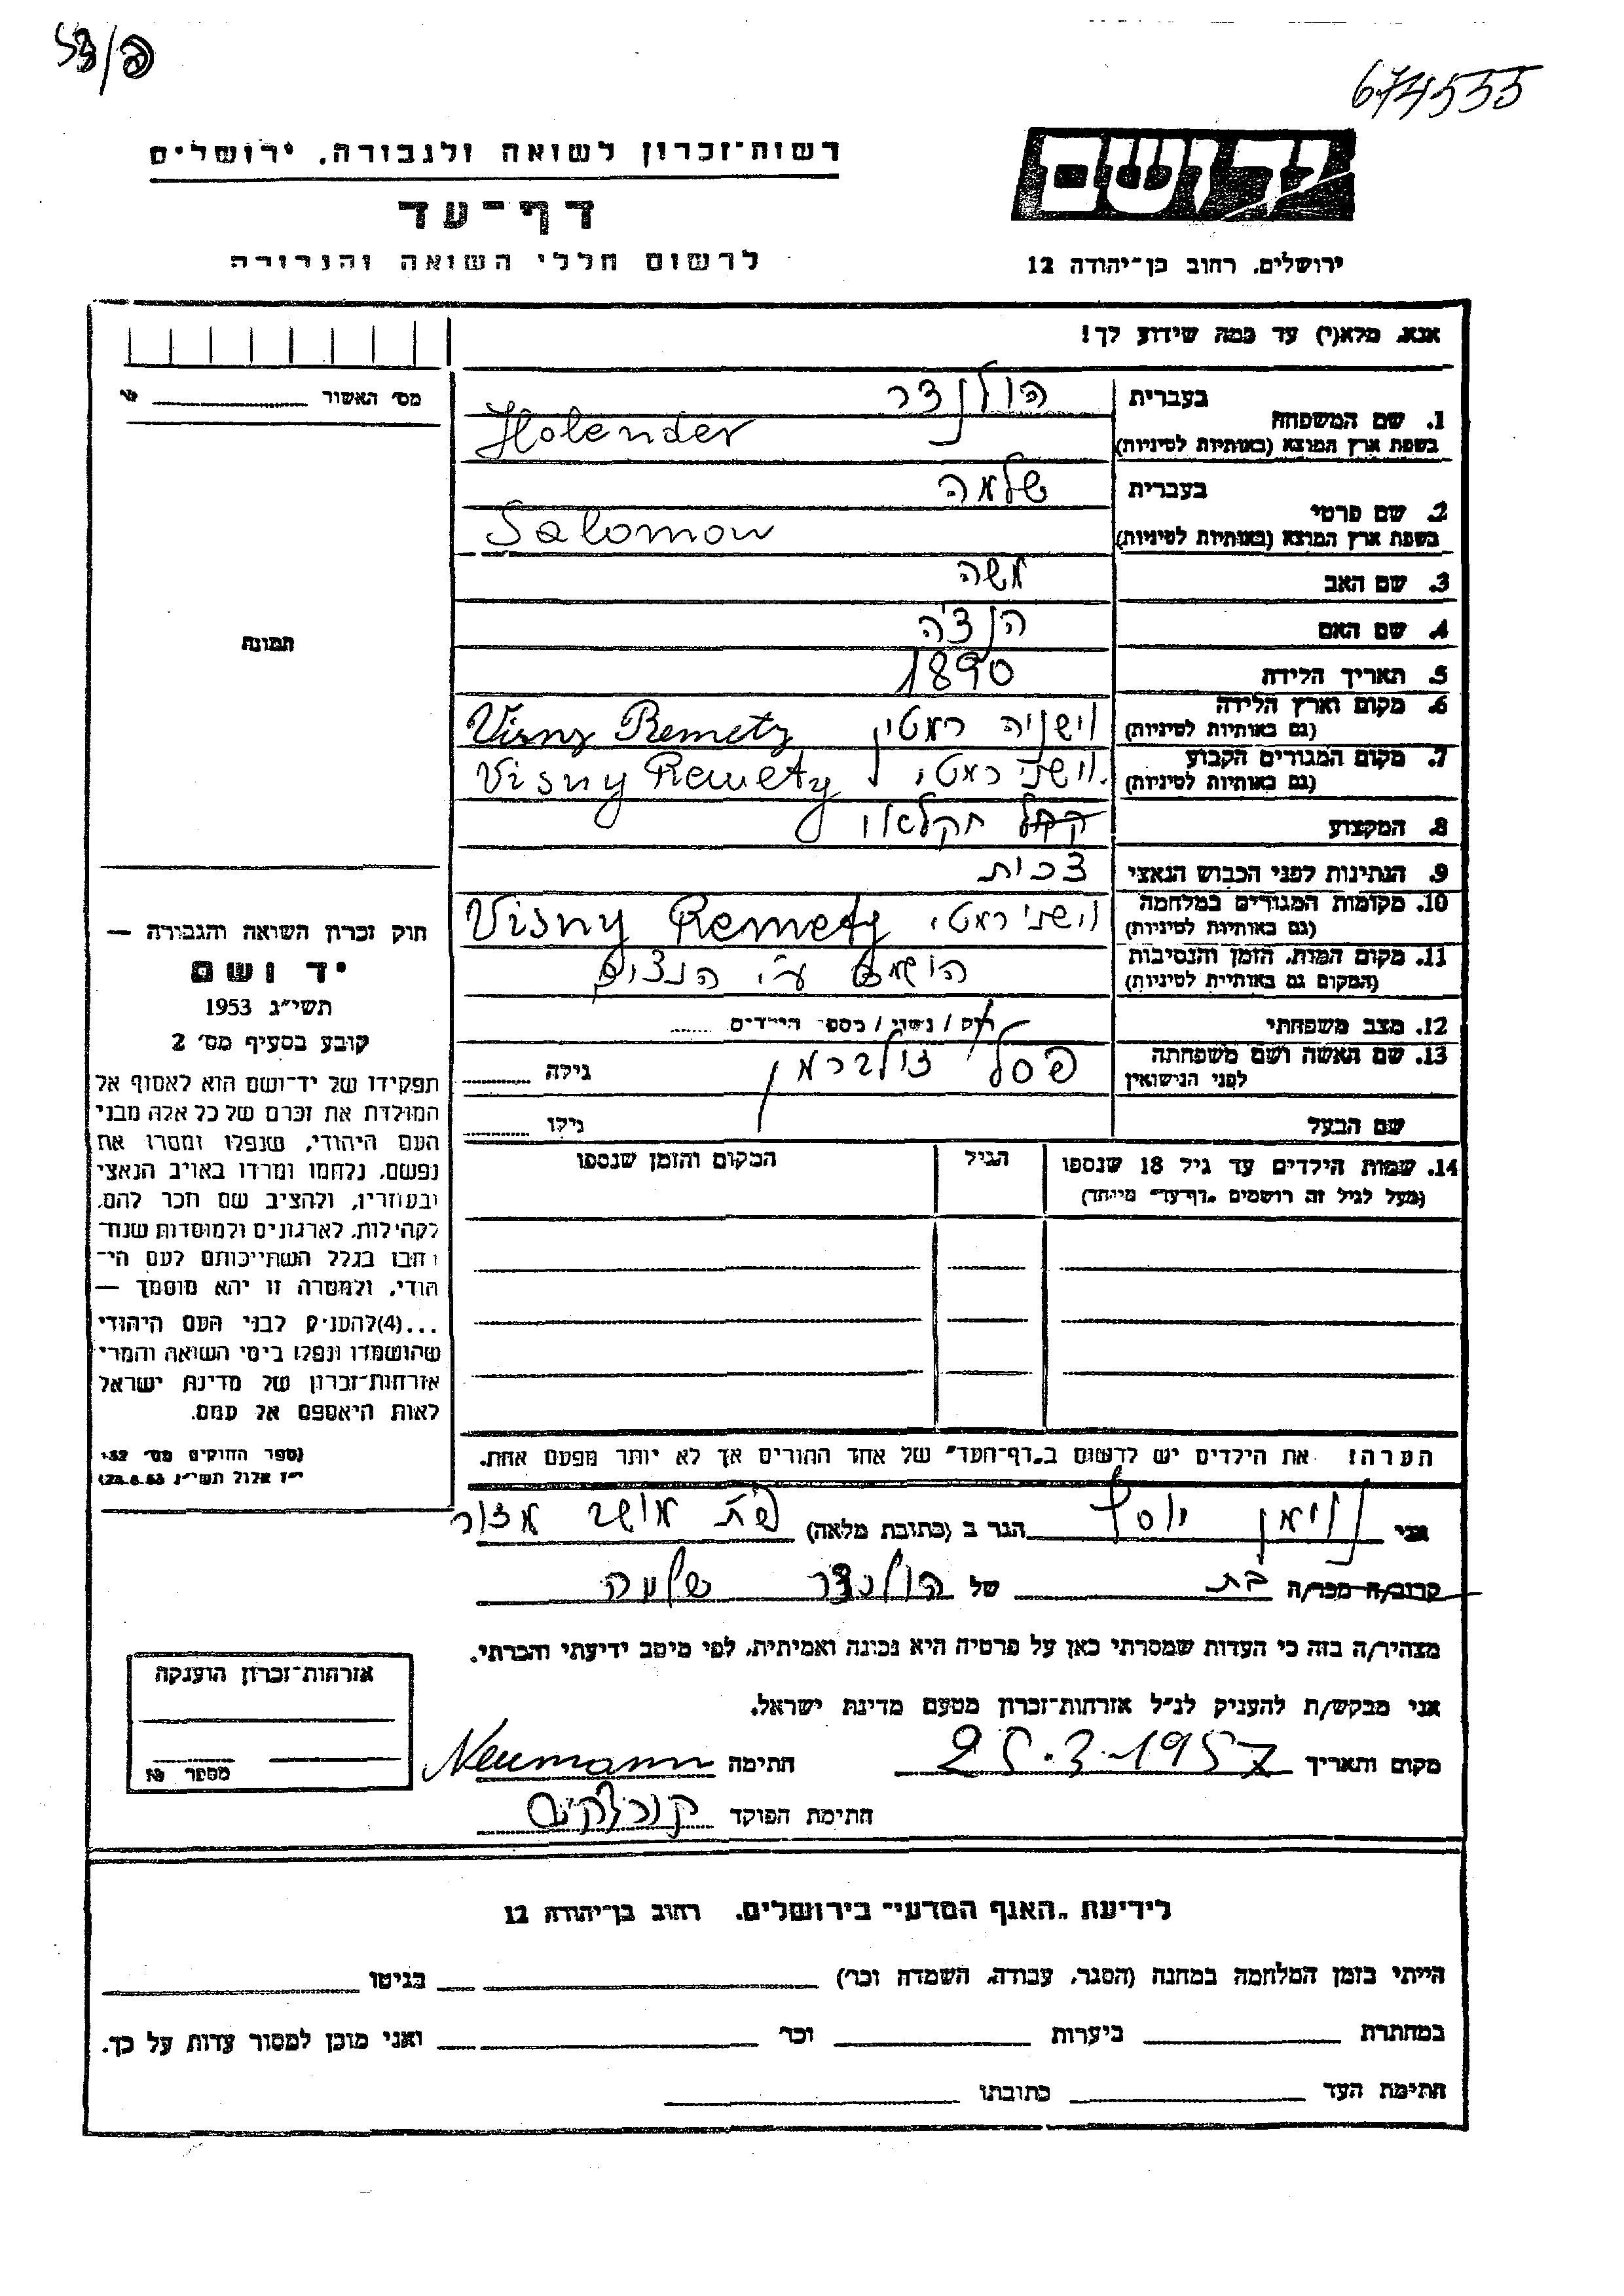 674555
רשות־זכרון לשואה ולגבורה, ירושלים
דף־עד
לרשום חללי השואה והגבורה
יד ושם
ירושלים, רחוב בן־יהודה 12
אנא, מלא(י) עד כמה שידוע לך!
מס׳ האשור
1. שם המשפחה בעברית הולנדר
בשפת ארץ המוצא (באותיות לטיניות) Holender
2. שם פרטי בעברית שלמה
בשפת ארץ המוצא (באותיות לטיניות) Salomon
3. שם האב משה
4. שם האם הנצ׳ה
5. תאריך הלידה 1890
6. מקום וארץ הלידה
(גם באותיות לטיניות) וישניה רמטי Visny Remety
7. מקום המגורים הקבוע
(גם באותיות לטיניות) וישני רמטי Visny Remety
8. המקצוע חקלאי
9. הנתינות לפני הכבוש הנאצי צכית
10. מקומות המגורים במלחמה
(גם באותיות לטיניות) וישני רמטי Visny Remety
11. מקום המות, הזמן והנסיבות
(המקום גם באותיות לטיניות) הושמד ע״י הנצים
12. מצב משפחתי רוק / נשוי / מספר הילדים
13. שם האשה ושם משפחתה
לפני הנישואין פסל זילברמן גילה
שם הבעל גילו
14. שמות הילדים עד גיל 18 שנספו הגיל המקום והזמן שנספו
(מעל לגיל זה רושמים ״דף־עד״ מיוחד)
הערה: את הילדים יש לרשום ב״דף־העד״ של אחד ההורים אך לא יותר מפעם אחת.
תמונה
חוק זכרון השואה והגבורה —
יד ושם
תשי״ג 1953
קובע בסעיף מס׳ 2
תפקידו של יד־ושם הוא לאסוף אל
המולדת את זכרם של כל אלה מבני
העם היהודי, שנפלו ומסרו את
נפשם, נלחמו ומרדו באויב הנאצי
ובעוזריו, ולהציב שם וזכר להם,
לקהילות, לארגונים ולמוסדות שנח־
רבו בגלל השתייכותם לעם הי־
הודי, ולמטרה זו יהא מוסמך —
...(4) להעניק לבני העם היהודי
שהושמדו ונפלו בימי השואה והמרי
אזרחות־זכרון של מדינת ישראל
לאות היאספם אל עמם.
(ספר החוקים מס׳ 132
י״ז אלול תשי״ג 28.8.53)
אני נוימן יוסף הגר ב (כתובת מלאה) פ״ת מושב מזור
קרוב/ה מכר/ה בת של הולנדר שלמה
מצהיר/ה בזה כי העדות שמסרתי כאן על פרטיה היא נכונה ואמיתית, לפי מיטב ידיעתי והכרתי.
אני מבקש/ת להעניק לנ״ל אזרחות־זכרון מטעם מדינת ישראל.
מקום ותאריך 25.3.1957 חתימה Neumann
חתימת הפוקד
אזרחות־זכרון הוענקה
מספר №
לידיעת ״האגף המדעי״ בירושלים, רחוב בן־יהודה 12
הייתי בזמן המלחמה במחנה (הסגר, עבודה, השמדה וכר) בגיטו
במחתרת ביערות וכר ואני מוכן למסור עדות על כך.
חתימת העד כתובתו